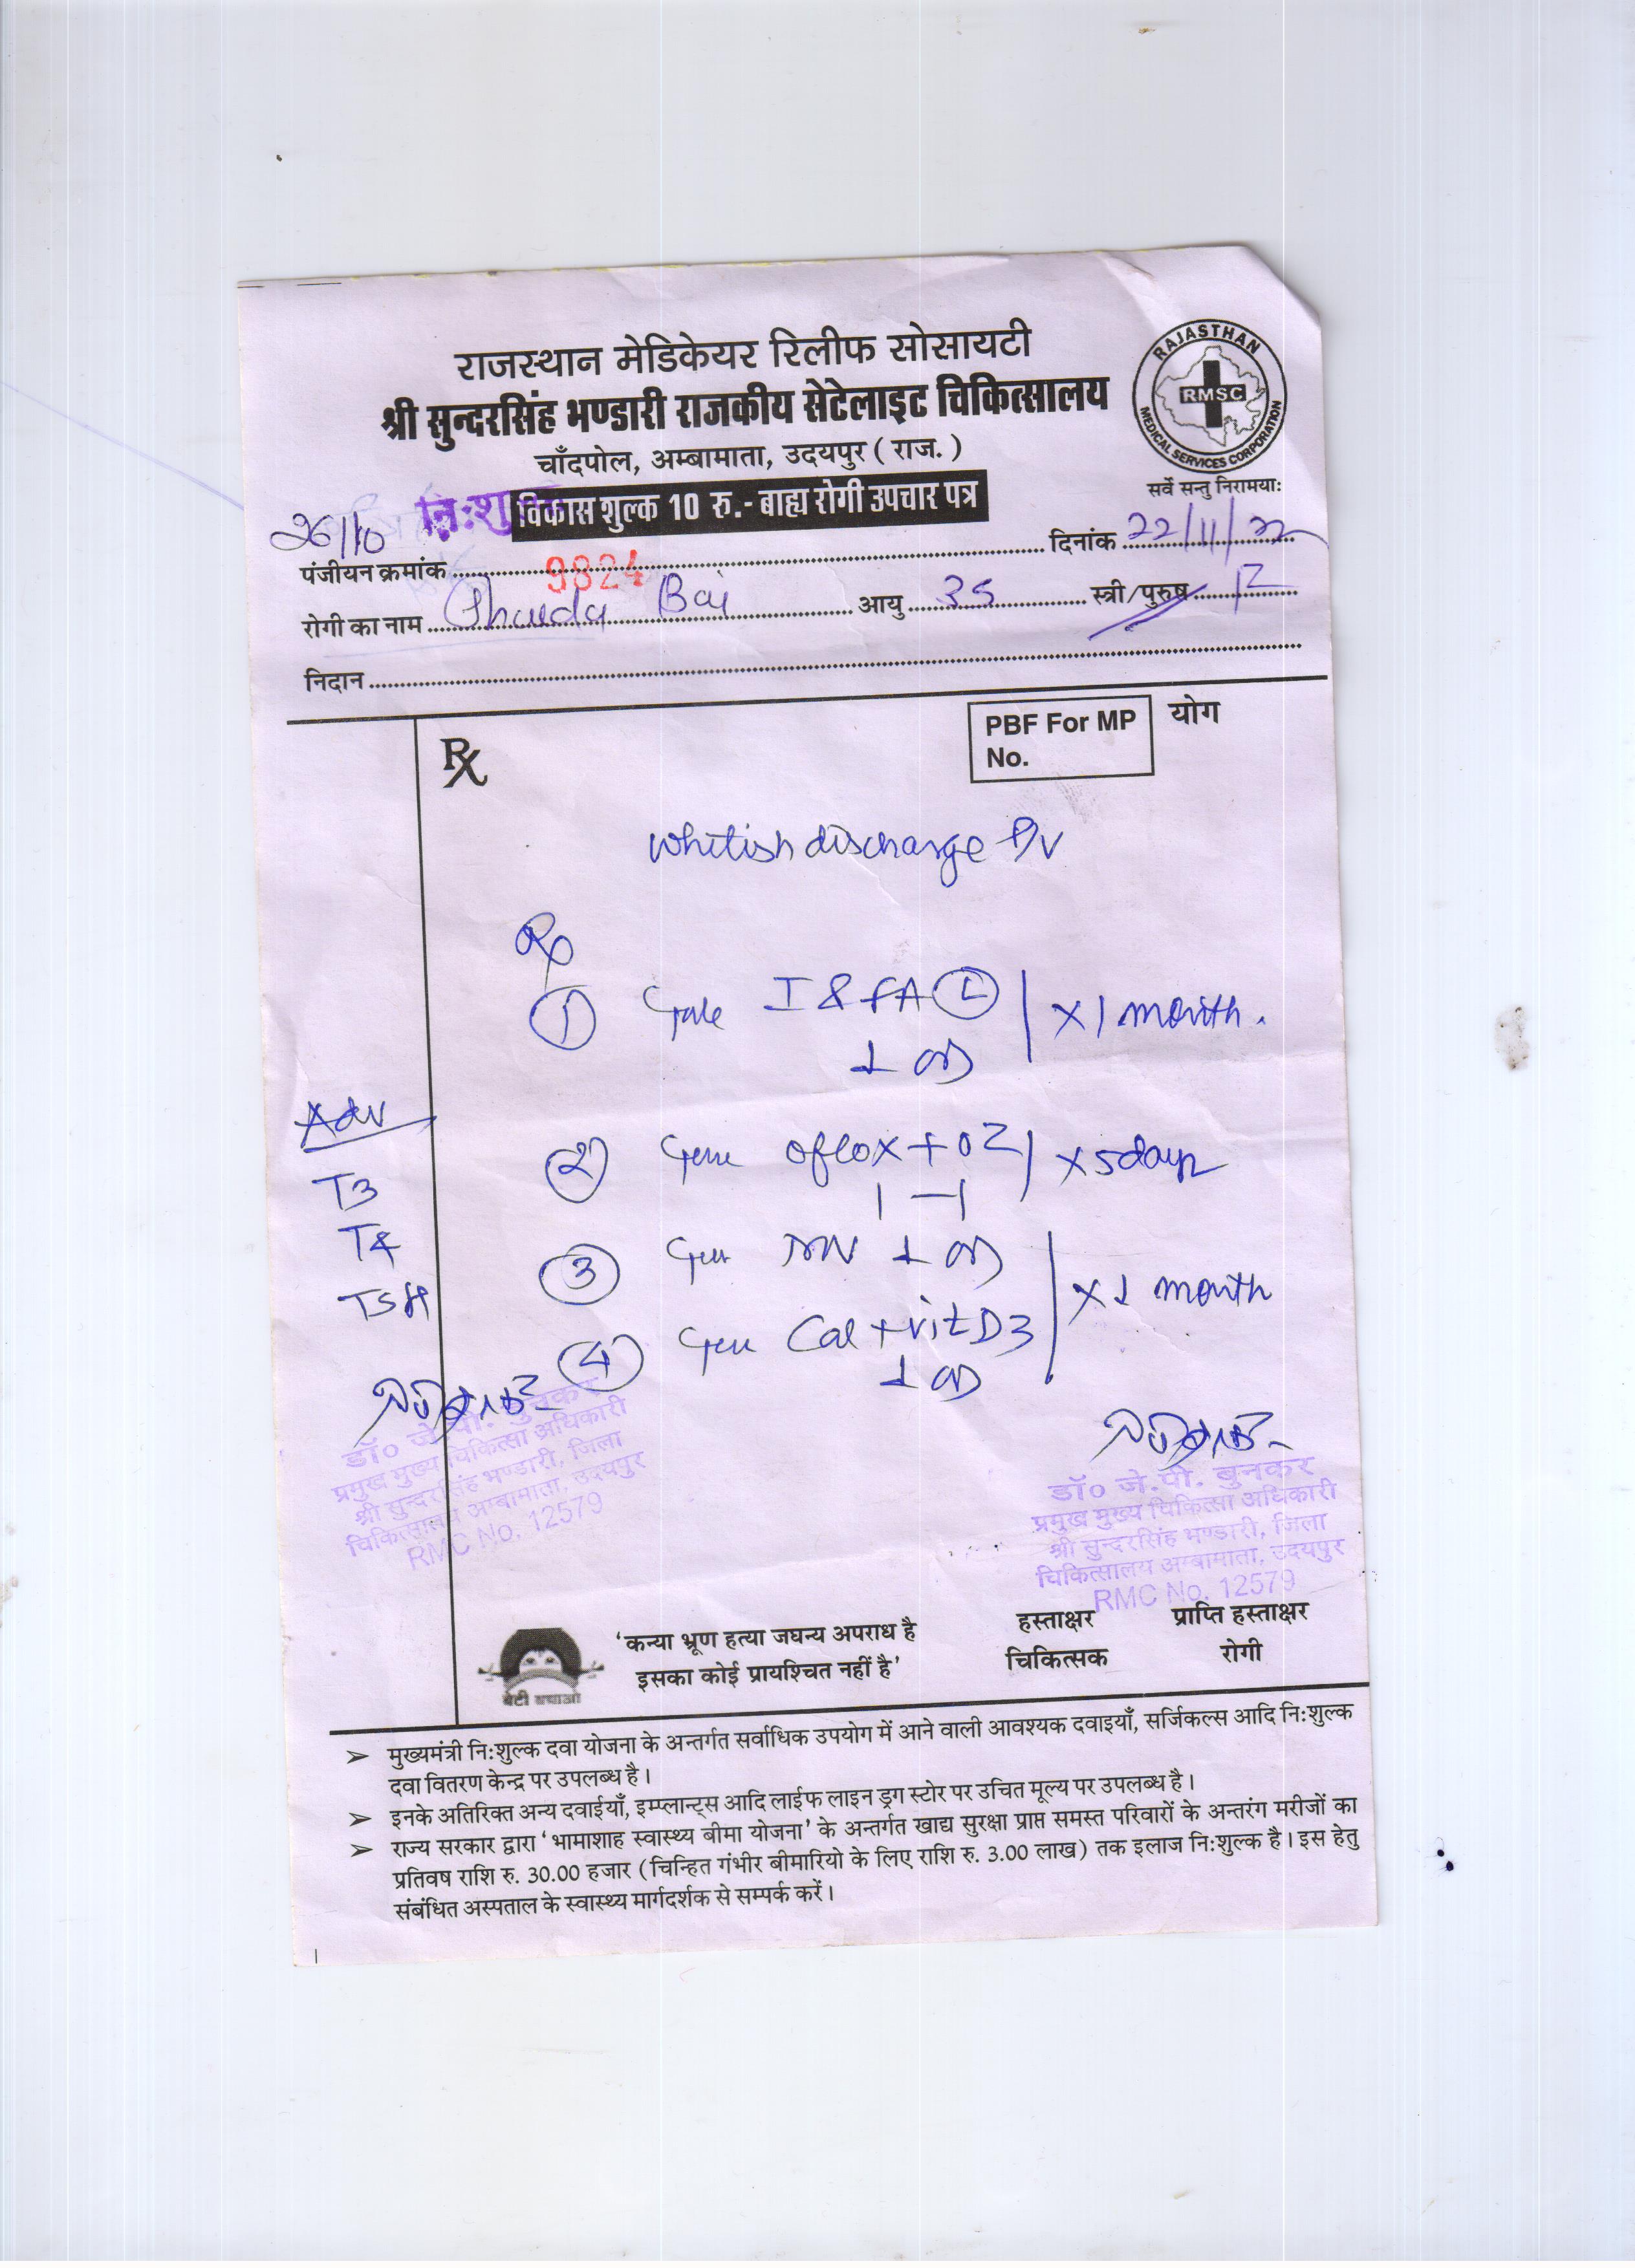 राजस्थान मेडिकेयर रिलीफ सोसायटी
श्री सुन्दरसिंह भण्डारी राजकीय सेटेलाइट चिकित्सालय
चाँदपोल, अम्बामाता, उदयपुर ( राज. )
RAJASTHAN
RMSC
MEDICAL SERVICES CORPORATION
सर्वे सन्तु निरामयाः
नि:शु
विकास शुल्क 10 रु.- बाह्य रोगी उपचार पत्र
26/10
पंजीयन क्रमांक 9824 दिनांक 22/11/22
रोगी का नाम Bai आयु 35 स्त्री/पुरुष F
निदान
PBF For MP No.
योग
Rx
Whitish discharge P/V
Rx
① I & FA Ⓛ x 1 month.
1 OD
Adv
② oflox + OZ x 5 days
1 — 1
T3
T4
③ MV 1 OD
x 1 month
TSH
④ Cal + vit D3
1 OD
डॉ० जे.पी. बुनकर
प्रमुख मुख्य चिकित्सा अधिकारी
श्री सुन्दरसिंह भण्डारी, जिला
चिकित्सालय अम्बामाता, उदयपुर
RMC No. 12579
डॉ० जे.पी. बुनकर
प्रमुख मुख्य चिकित्सा अधिकारी
श्री सुन्दरसिंह भण्डारी, जिला
चिकित्सालय अम्बामाता, उदयपुर
RMC No. 12579
बेटी बचाओ
'कन्या भ्रूण हत्या जघन्य अपराध है
इसका कोई प्रायश्चित नहीं है'
हस्ताक्षर
चिकित्सक
प्राप्ति हस्ताक्षर
रोगी
➢ मुख्यमंत्री नि:शुल्क दवा योजना के अन्तर्गत सर्वाधिक उपयोग में आने वाली आवश्यक दवाइयाँ, सर्जिकल्स आदि नि:शुल्क
दवा वितरण केन्द्र पर उपलब्ध है।
➢ इनके अतिरिक्त अन्य दवाईयाँ, इम्प्लान्ट्स आदि लाईफ लाइन ड्रग स्टोर पर उचित मूल्य पर उपलब्ध है।
➢ राज्य सरकार द्वारा 'भामाशाह स्वास्थ्य बीमा योजना' के अन्तर्गत खाद्य सुरक्षा प्राप्त समस्त परिवारों के अन्तरंग मरीजों का
प्रतिवष राशि रु. 30.00 हजार (चिन्हित गंभीर बीमारियो के लिए राशि रु. 3.00 लाख) तक इलाज नि:शुल्क है। इस हेतु
संबंधित अस्पताल के स्वास्थ्य मार्गदर्शक से सम्पर्क करें।